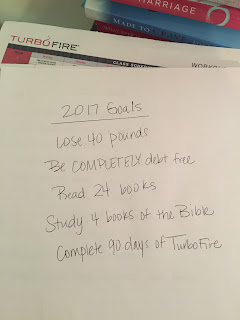 MARRIAGE
MADE TO CRAVE
TURBOFIRE
CLASS SCHEDULE
2017 Goals
Lose 40 pounds
Be COMPLETELY debt free
Read 24 books
Study 4 books of the Bible
Complete 90 days of TurboFire